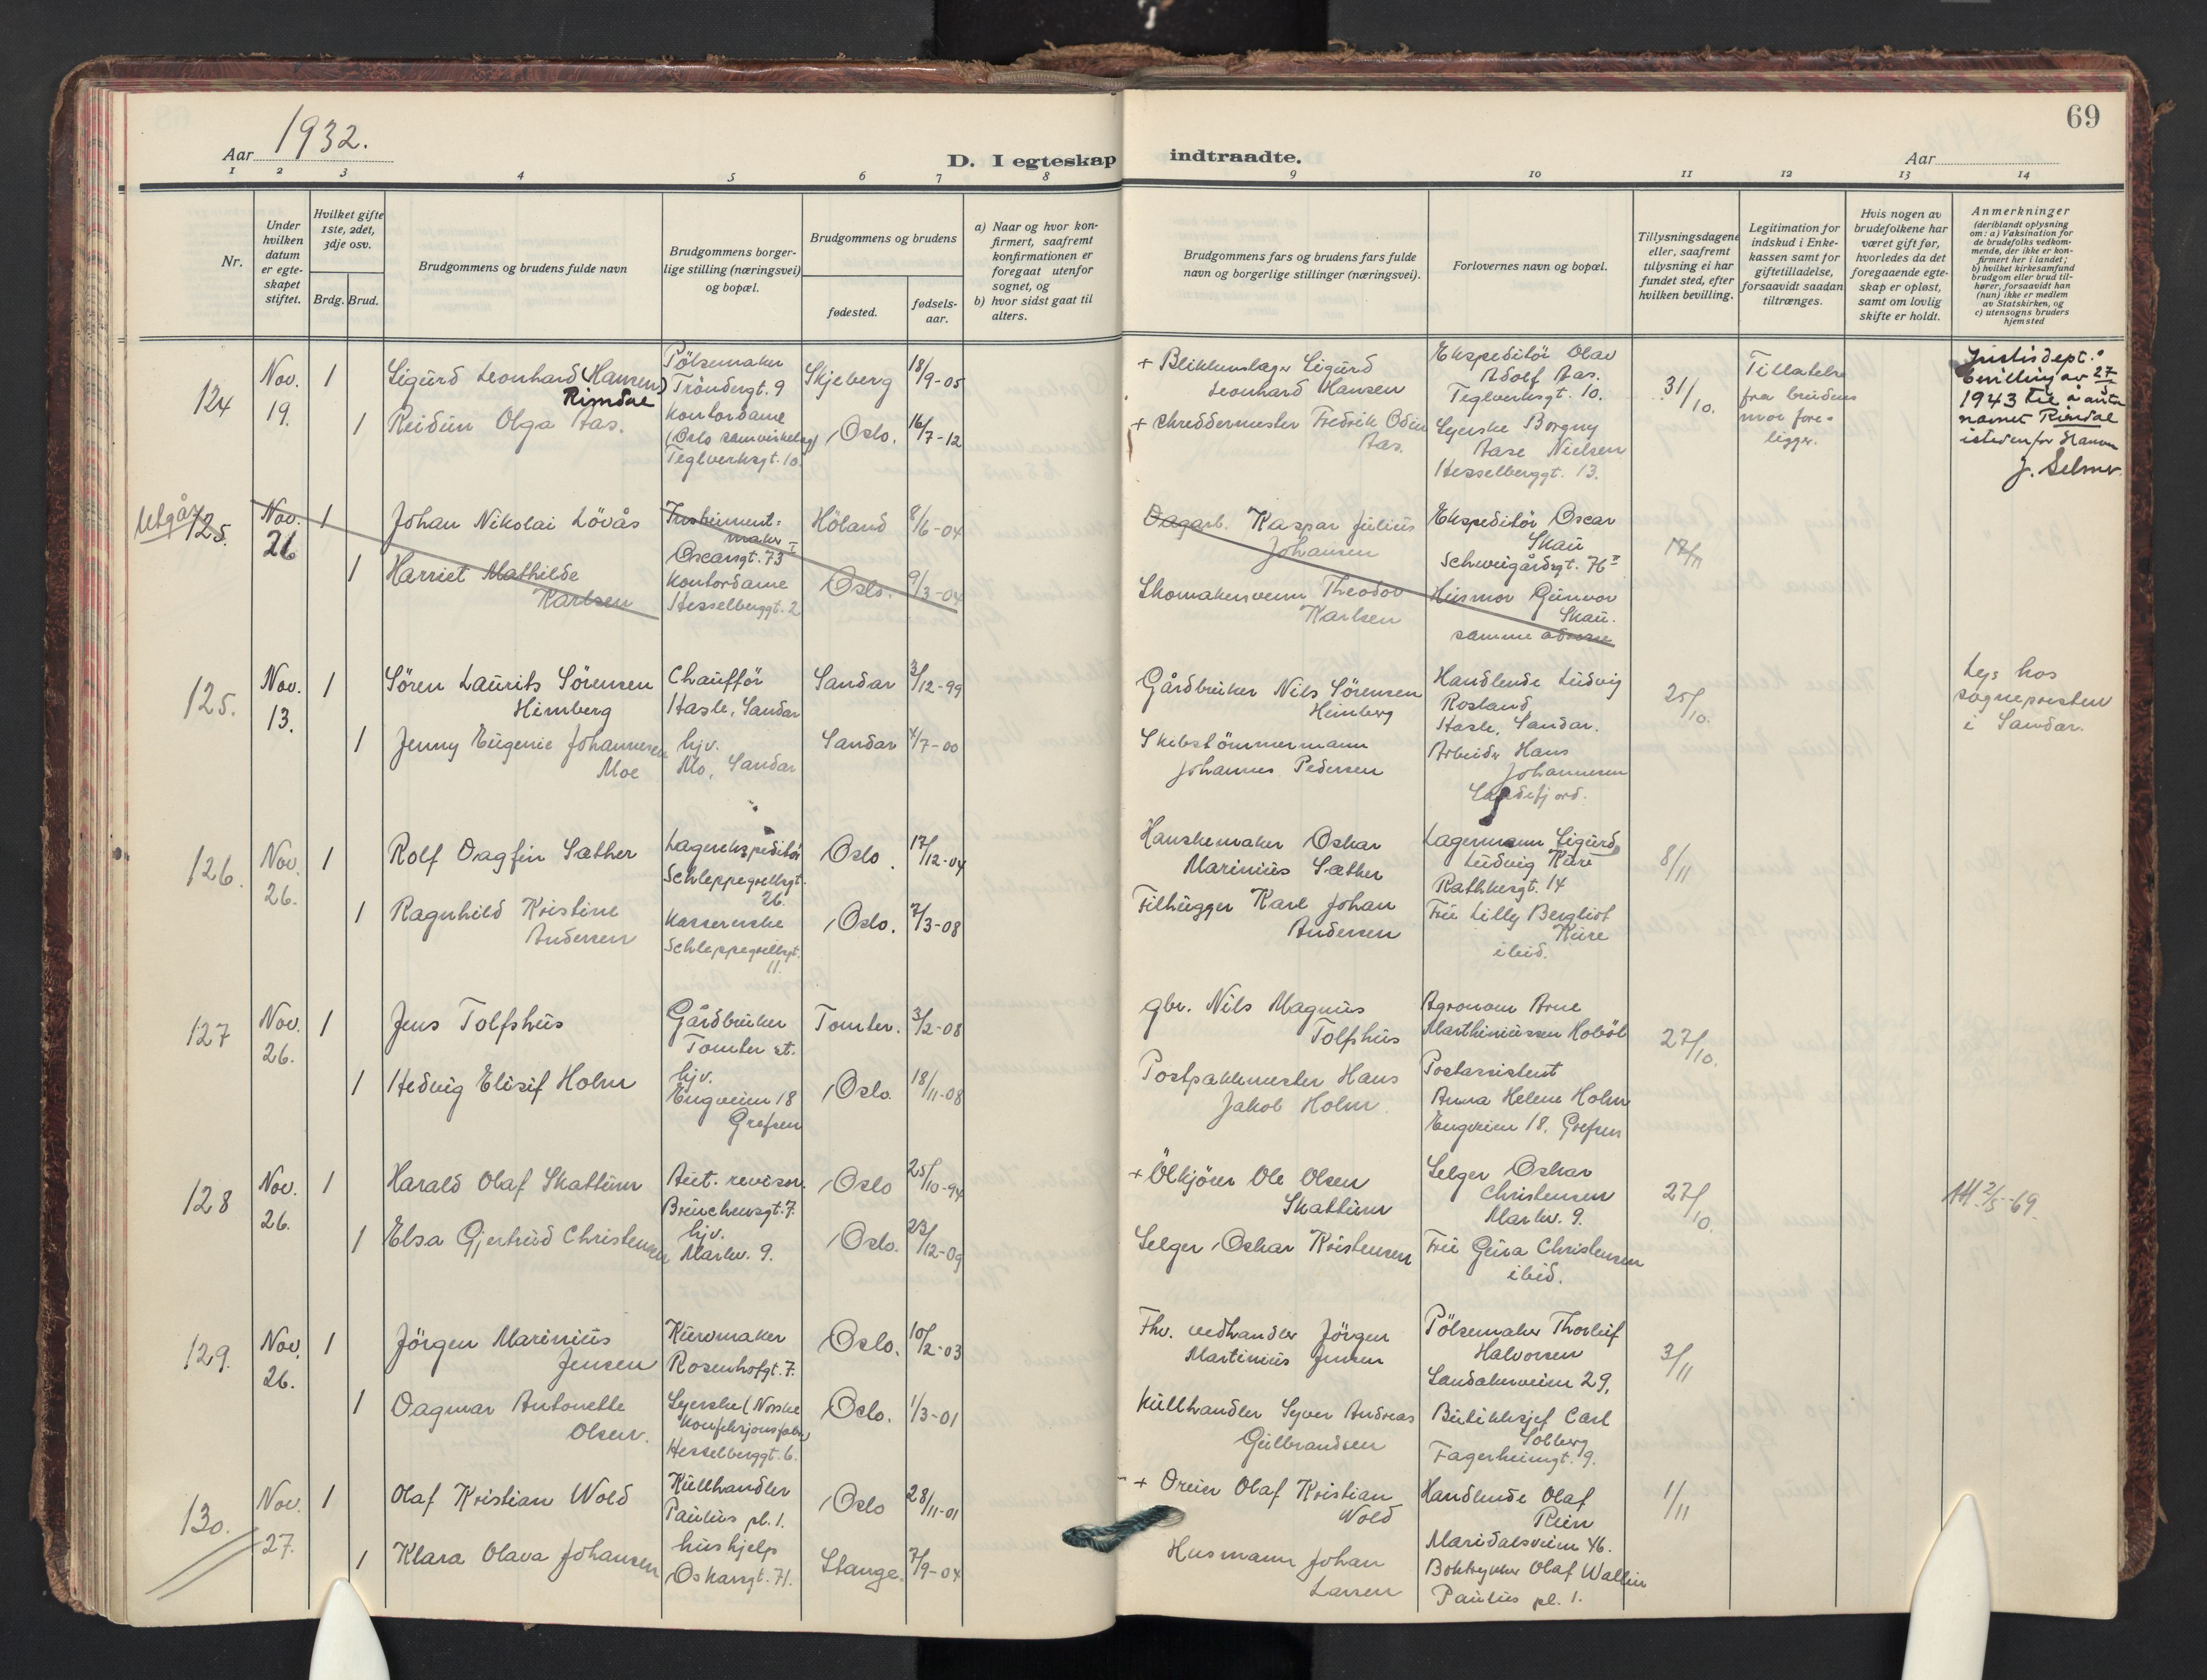 69
Aar 1932.
D. I egteskap indtraadte.
Aar
1 2 3 4 5 6 7 8 9 10 11 12 13 14
Nr.
Under hvilken datum er egteskapet stiftet.
Hvilket gifte 1ste, 2det, 3dje osv.
Brdg. Brud.
Brudgommens og brudens fulde navn
Brudgommens borgerlige stilling (næringsvei) og bopæl.
Brudgommens og brudens
fødested.
fødselsaar.
a) Naar og hvor konfirmert, saafremt konfirmationen er foregaat utenfor sognet, og
b) hvor sidst gaat til alters.
Brudgommens fars og brudens fars fulde navn og borgerlige stillinger (næringsvei).
Forlovernes navn og bopæl.
Tillysningsdagene eller, saafremt tillysning ei har fundet sted, efter hvilken bevilling.
Legitimation for indskud i Enkekassen samt for giftetilladelse, forsaavidt saadan tiltrænges.
Hvis nogen av brudefolkene har været gift før, hvorledes da det foregaaende egteskap er opløst, samt om lovlig skifte er holdt.
Anmerkninger
(deriblandt oplysning om: a) Vaksination for de brudefolks vedkommende, der ikke er konfirmert her i landet; b) hvilket kirkesamfund brudgom eller brud tilhører, forsaavidt han (hun) ikke er medlem av Statskirken, og c) utensogns bruders hjemsted
124
Nov. 19.
1
Sigurd Leonhard (Hansen)
Rimdal
Pölsemaker
Tröndergt. 9
Skjeberg
18/9-05
+ Blikkenslager Sigurd
Leonhard Hansen
Ekspeditör Olav
Adolf Aas.
Teglverksgt. 10.
31/10.
Tillatelse
fra brudens
mor fore-
ligger.
Justisdept.
bevilling av 27
1943 til å anta
navnet Rimdal
istedenfor Hansen
J. Selmer
1
Reidun Olga Aas.
Kontordame
(Oslo samvirkelag)
Teglverksgt. 10.
Oslo.
16/7-12
+ Skreddermester Fredrik Odin
Aas.
Syerske Borgny
Aase Nielsen
Hesselberggt. 13.
Utgår
125.
Nov. 26
1
Johan Nikolai Lövås
Instrument-
maker
Oscarsgt. 73
Höland
8/6-04
Dagarb. Kaspar Julius
Johansen
Ekspeditör Oscar
Skau
Schweigårdsgt. 76 II
17/11
1
Harriet Mathilde
Karlsen
Kontordame
Hesselberggt. 2
Oslo.
9/3-04
Skomakersvenn Theodor
Karlsen
Husmor Gunvor
Skau.
samme adresse
125.
Nov. 13.
1
Sören Laurits Sörensen
Himberg
Chafför
Hasle, Sandar
Sandar
3/12-99
Gårdbruker Nils Sörensen
Himberg
Handlende Ludvig
Rosland
Hasle, Sandar.
25/10.
Lys hos
sognepresten
i Sandar.
1
Jenny Eugenie Johannesen
Moe
hjv.
Mo, Sandar
Sandar
4/7-00
Skibstömmermann
Johannes Pedersen
Arbeider Hans
Johannesen
Sandefjord.
126.
Nov. 26.
1
Rolf Dagfin Sæther
Lagerekspeditör
Schleppegrellsgt.
26.
Oslo.
17/12-04
Hanskemaker Oskar
Marinius Sæther
Lagermann Sigurd
Ludvig Kure
Rathkesgt. 14
8/11
1
Ragnhild Kristine
Andersen
Kassererske
Schleppegrellsgt.
11.
Oslo.
7/3-08
Filhugger Karl Johan
Andersen
Fru Lilly Bergliot
Kure
ibid.
127
Nov. 26.
1
Jens Tolfshus
Gårdbruker
Tomter st.
Tomter.
3/2-08
gbr. Nils Magnus
Tolfshus
Agronom Arne
Marthiniussen Hoböl
27/10.
1
Hedvig Elisif Holm
hjv.
Engveien 18
Grefsen
Oslo.
18/11-08
Postpakkmester Hans
Jakob Holm.
Postassistent
Anna Helene Holm
Engveien 18. Grefsen
128
Nov. 26.
1
Harald Olaf Skattum
Aut. revisor.
Breuchensgt. 7.
Oslo
25/10-94
+ Ölkjörer Ole Olsen
Skattum
Selger Oskar
Christensen
Markv. 9.
27/10
2/5-69.
1
Elsa Gjertrud Christensen
hjv.
Markv. 9.
Oslo.
23/12-09
Selger Oskar Kristensen
Fru Gina Christensen
ibid.
129.
Nov. 26.
1
Jörgen Marinius
Jensen
Kurvmaker
Rosenhofgt. 7.
Oslo.
10/2-03
Fhv. vedhandler Jörgen
Martinius Jensen
Pölsemaker Thorleif
Halvorsen
Sandakerveien 29.
3/11
1
Dagmar Antonette
Olsen.
Syerske (Norske
Konfeksjonsfabr.)
Hesselberggt. 6.
Oslo.
1/3-01
Kullhandler Syver Andreas
Gulbrandsen
Butikksjef Carl
Solberg
Fagerheimgt. 9.
130.
Nov. 27.
1
Olaf Kristian Wold
Kullhandler
Paulus pl. 1.
Oslo
28/11-01
+ Dreier Olaf Kristian
Wold
Handlende Olaf
Rein
Maridalsveien 46.
1/11
1
Klara Olava Johansen
hushjelp
Oskarsgt. 71.
Stange.
7/9-04
Husmann Johan
Larsen
Boktrykker Olaf Wallin
Paulus pl. 1.